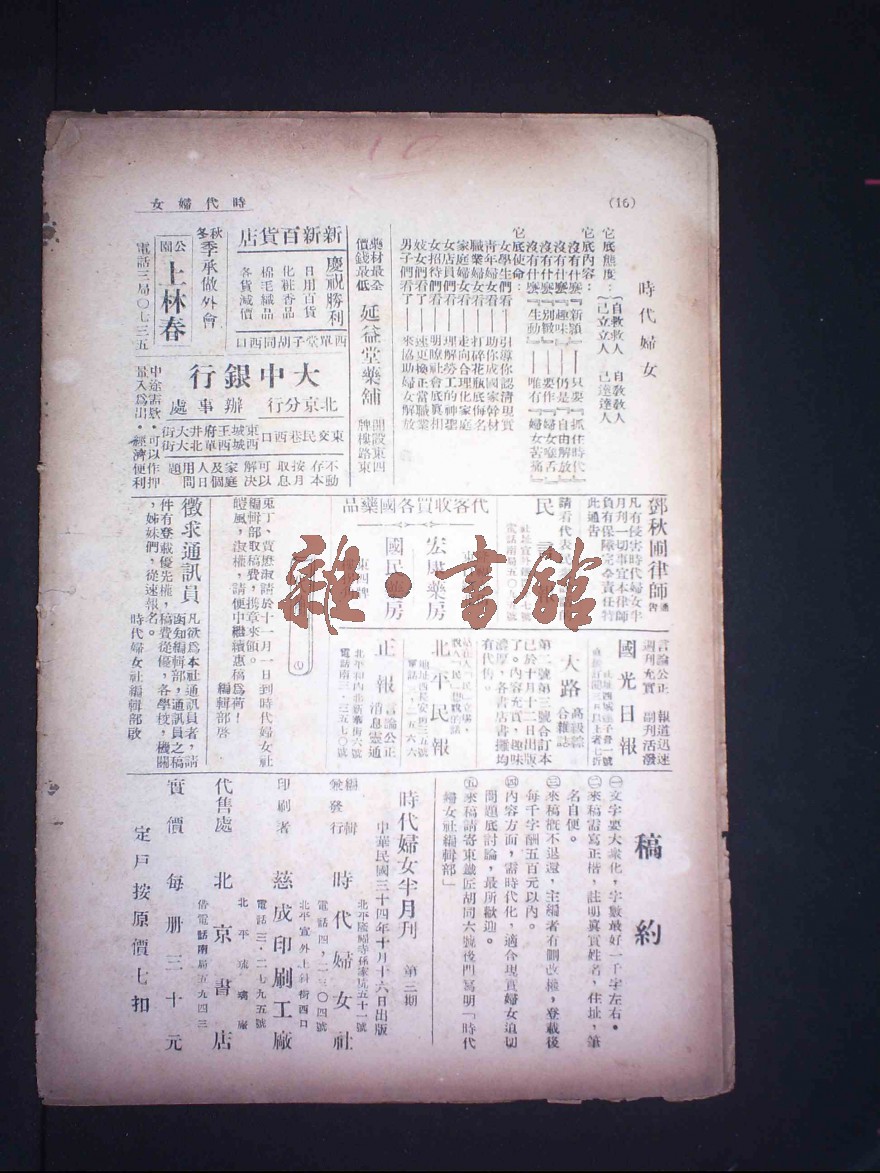 時代婦女
(16)
時代婦女
它底態度：
自救救人　自教教人
己立立人　己達達人
它底內容：
沒有什麼『新穎』——只要『抓住時代』
沒有什麼『趣味』——仍是『自由解放』
沒有什麼『別緻』——要作『婦女喉舌』
沒有什麼『生動』——唯有『婦女苦痛』
它底使命：
女學生們看——引導你認清現實
青年婦女看——助你成國家幹材
職業婦女看——打碎花瓶底侮名
家庭婦女看——走向合理化家庭
女店員們看——理解勞工的神聖
女招待們看——明瞭社會底真相
妓女們看了——速更換正當職業
男子們看了——來協助婦女解放
藥材最全
價錢最低
延益堂藥舖
開設東四
牌樓路東
新新百貨店
慶祝勝利
日用百貨
化粧香品
棉毛織品
各貨減價
西單堂子胡同西口
秋冬季承做外會
公園
上林春
電話三局〇七三五
大中銀行
北京分行　辦事處
東交民巷西口
東城王府井大街
西城西單北大街
不動存本
按月取息
可以解決
家庭及個
人日用問題
中途需款，可以作押
量入為出，經濟便利
鄧秋圃律師
通告
凡有侵害時代婦女半
月刊一切事宜本律師
負有保障完全責任特
此通告
請看代表
民
代客收買各國藥品
宏康藥房
國民藥房
東四牌
編輯部取稿費，携章來領。
皚風，淑權，請便中繼續惠稿為荷！
編輯部啓
徵求通訊員
凡欲為本社通訊員者，請
函知編輯部，通訊員之稿
件有登載優先權，稿費從優，各學校，機關
，姊妹們，從速報名。
時代婦女社編輯部啟
言論公正　報道迅速
週刊充實　副刊活潑
國光日報
大路
高級綜
合雜誌
第二號第三號合訂本
已於十月十二日出版
了。內容充實，趣味
濃厚，各書店書攤均
有代售。
北平民報
正報
言論公正
消息靈通
北平和內北新華街六號
電話南三·三五七〇號
稿約
㊀文字要大衆化，字數最好一千字左右。
㊁來稿需寫正楷，註明眞實姓名，住址，筆
名自便。
㊂來稿槪不退還，主編者有刪改權，登載後
每千字酬五百元以內。
㊃內容方面，需時代化，適合現實婦女迫切
問題底討論，最所歡迎。
㊄來稿請寄東鐵匠胡同六號後門寫明「時代
婦女社編輯部」
時代婦女半月刊　第三期
中華民國三十四年十月十六日出版
編輯兼發行
時代婦女社
北平隆福寺孫家坑五十一號
電話四·二三〇四號
印刷者
慈成印刷工廠
北平宣外上斜街西口
電話三·二七九五號
代售處
北京書店
北平琉璃廠
借電話南局五九四三
實價　每册三十元
定戶按原價七扣
雜·書館